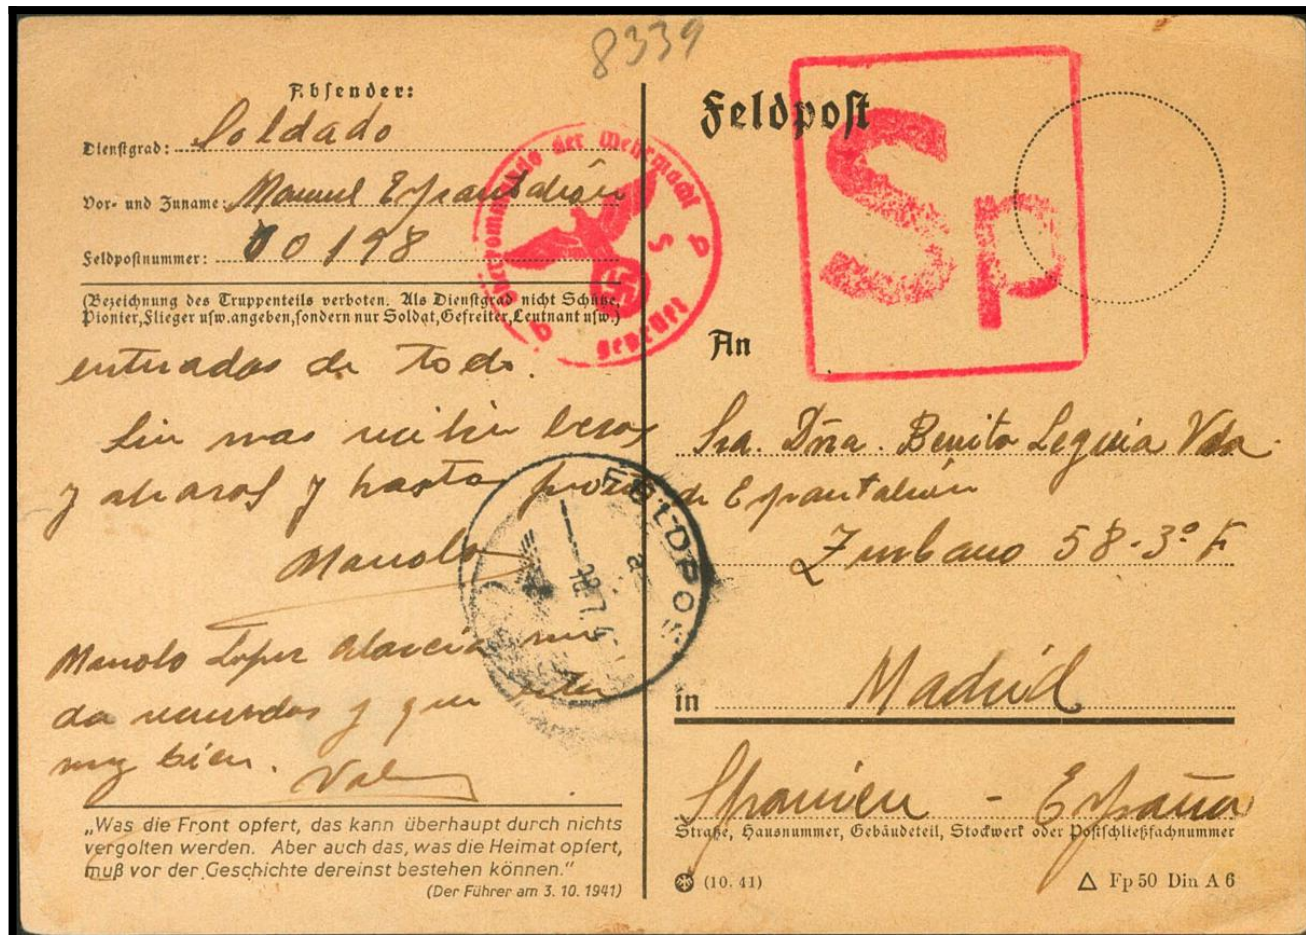 8339
Absender:
Dienstgrad: Soldado
Vor- und Zuname: Manuel Espantaleón
Feldpostnummer: 00198
(Bezeichnung des Truppenteils verboten. Als Dienstgrad nicht Schütze,
Pionier, Flieger usw. angeben, sondern nur Soldat, Gefreiter, Leutnant usw.)
Oberkommando der Wehrmacht
geprüft
b b
enteradas de todo.
Sin mas reciben besos
y abrazos y hasta pronto
Manolo
Manolo Lopez me
da recuerdos y que está
muy bien.
„Was die Front opfert, das kann überhaupt durch nichts
vergolten werden. Aber auch das, was die Heimat opfert,
muß vor der Geschichte dereinst bestehen können.“
(Der Führer am 3. 10. 1941)
FELDPOST
Feldpost
Sp
An
Sra. Dña. Benita Leguia Vda.
de Espantaleón
Zurbano 58-3º
in Madrid
Spanien - España
Straße, Hausnummer, Gebäudeteil, Stockwerk oder Postschließfachnummer
(10. 41)
Fp 50 Din A 6